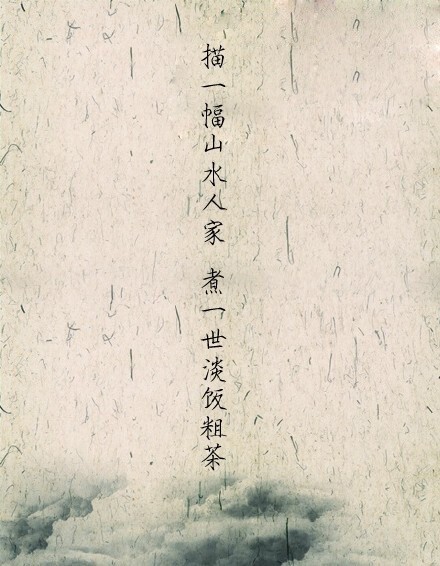 描一幅山水人家 煮一世淡饭粗茶